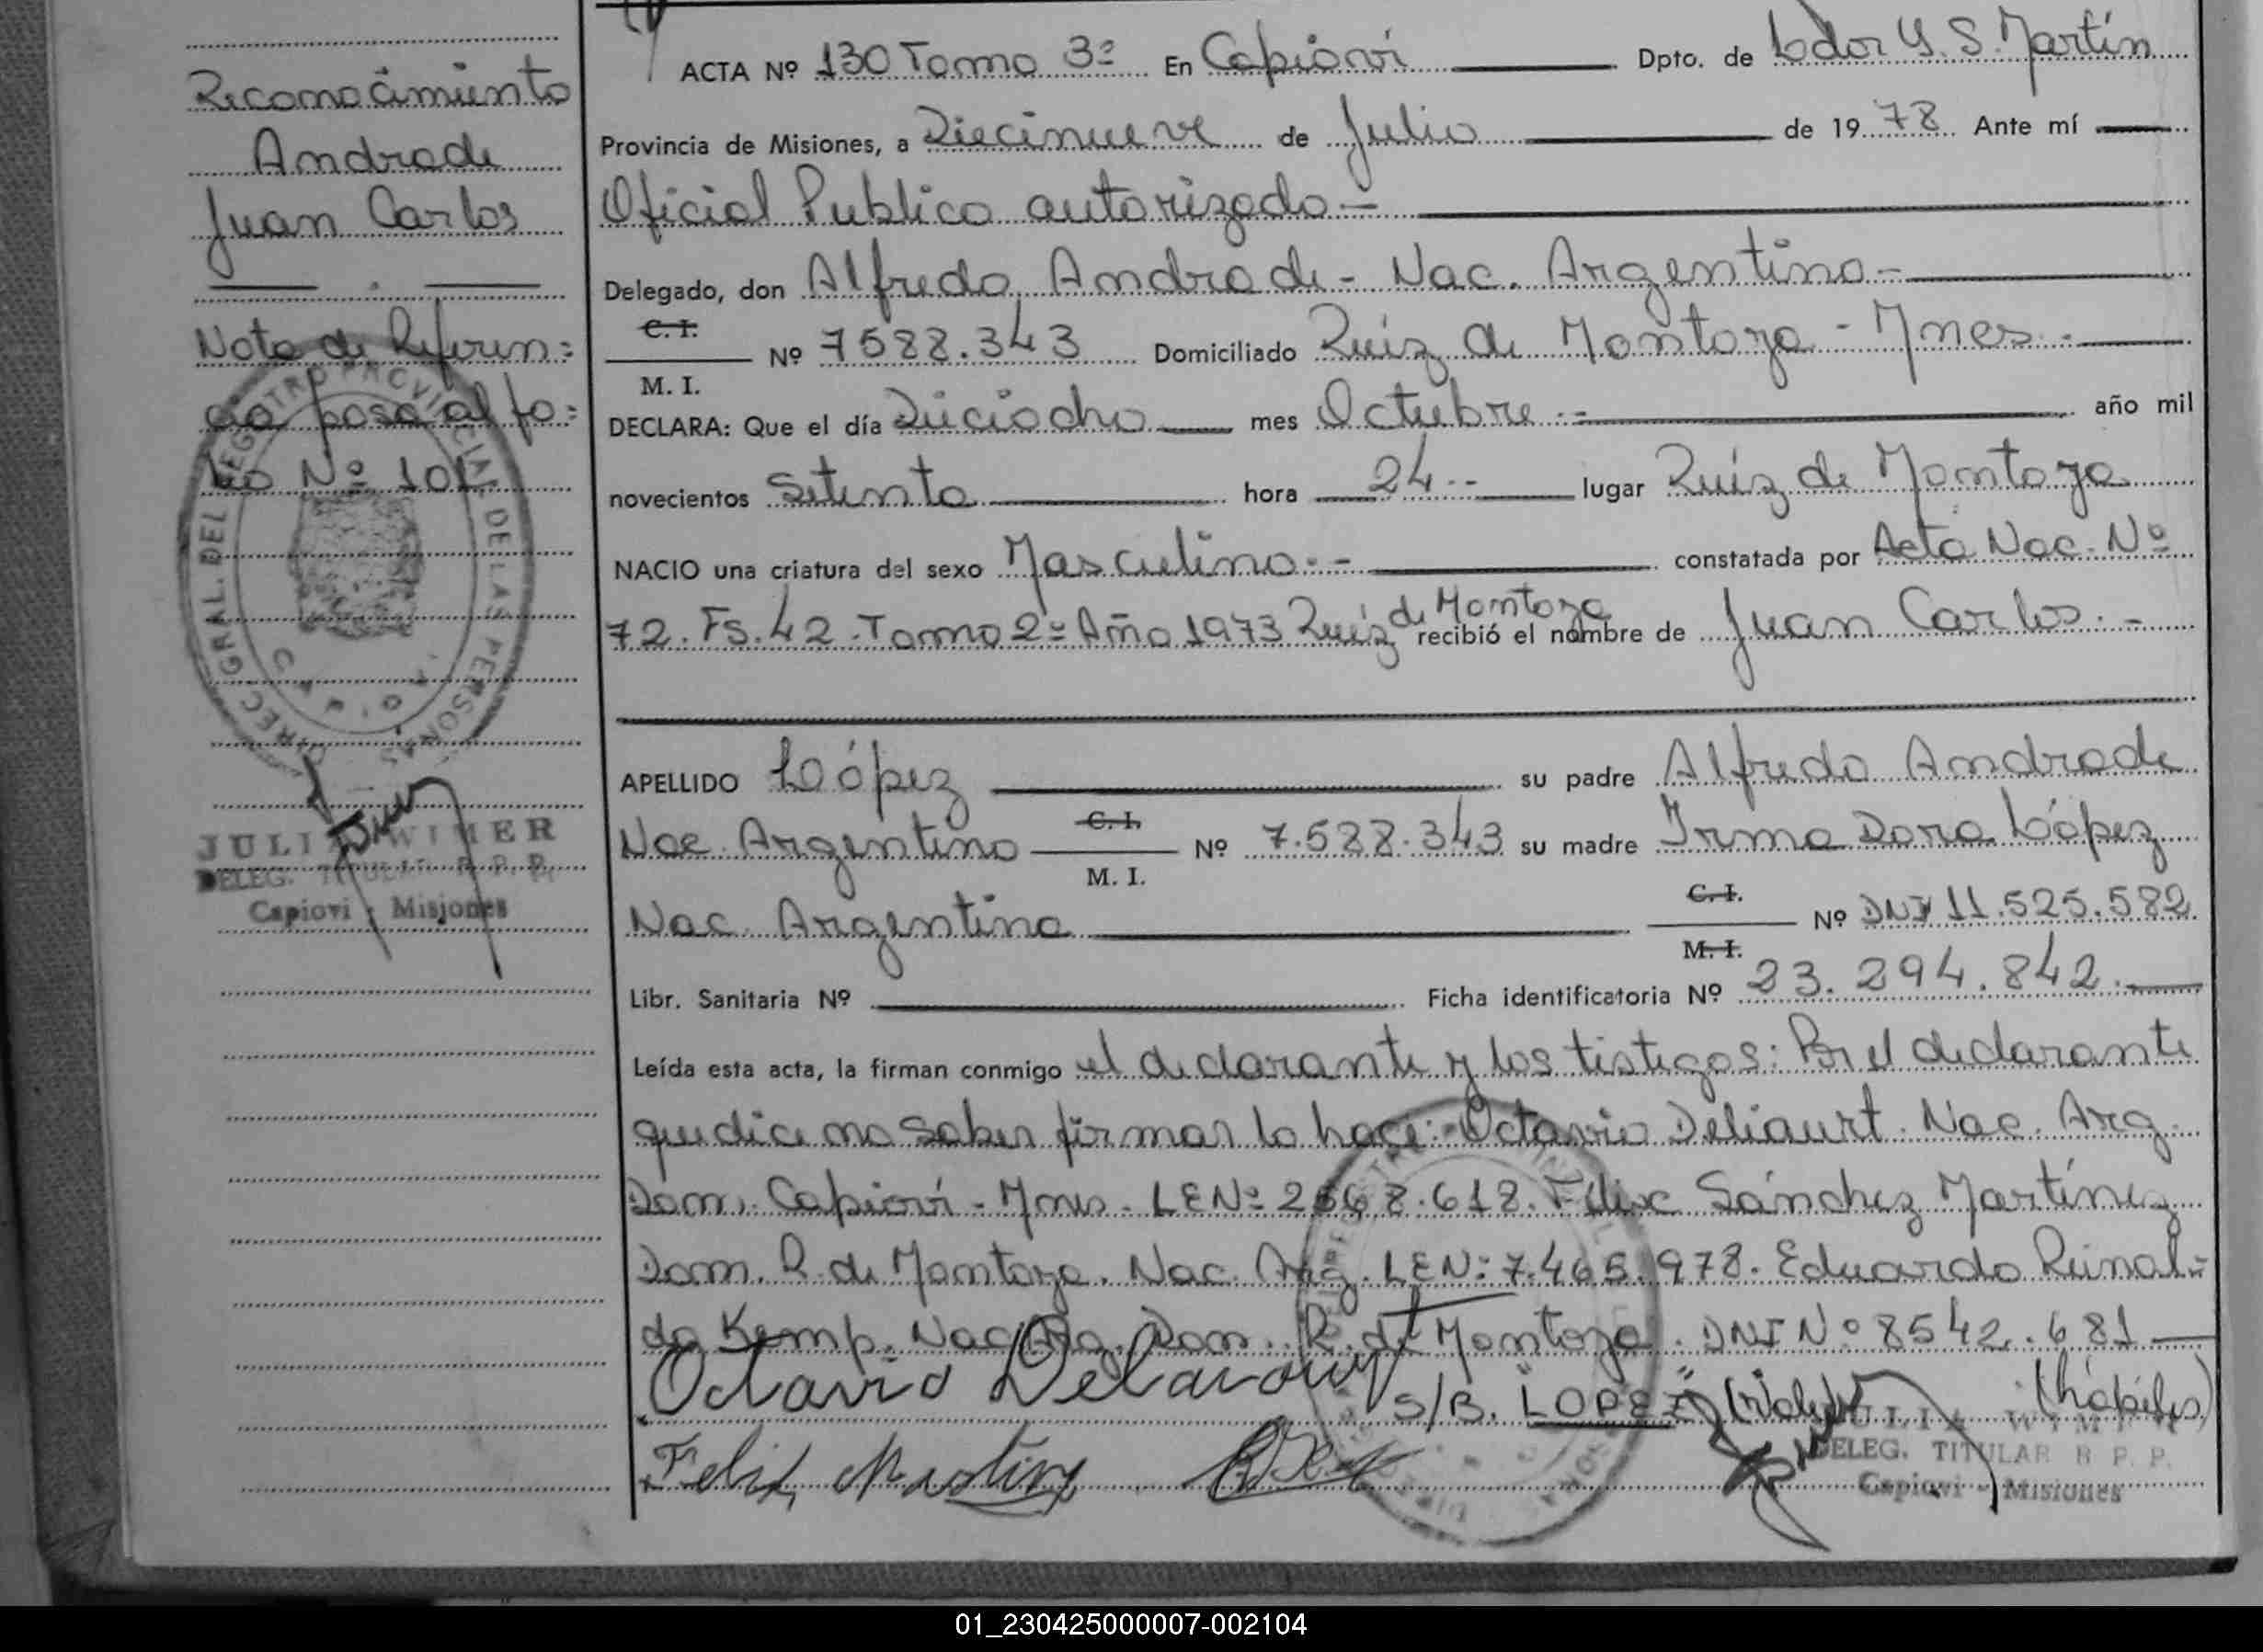 Reconocimiento
Andrade
Juan Carlos
Nota de Referen=
cia pasa al fo=
lio Nº 101
DIREC. GRAL. DEL REGISTRO PROVINCIAL DE LAS PERSONAS
JULIA WIMER
DELEG. TITULAR R. P. P.
Capiovi - Misiones
ACTA Nº 130 Tomo 3º En Capioví Dpto. de Ldor G. S. Martín
Provincia de Misiones, a Diecinueve de Julio de 1978 Ante mí
Oficial Publico autorizado -
Delegado, don Alfredo Andrade - Nac. Argentino -
C. I.
M. I. Nº 7588.343 Domiciliado Ruíz de Montoya - Mnes. -
DECLARA: Que el día Dieciocho mes Octubre . - año mil
novecientos Setenta hora 24 -- lugar Ruíz de Montoya
NACIO una criatura del sexo Masculino. - constatada por Acta Nac. Nº
72. Fs. 42. Tomo 2º Año 1973 Ruíz de Montoya recibió el nombre de Juan Carlos. -
APELLIDO López su padre Alfredo Andrade
Nac. Argentino C. I. M. I. Nº 7.588.343 su madre Irma Dora López
Nac. Argentina C. I. M. I. Nº DNI 11.525.582
Libr. Sanitaria Nº Ficha identificatoria Nº 23.294.842.
Leída esta acta, la firman conmigo el declarante y los testigos: Por el declarante
que dice no saber firmar lo hace: Octavio Deliaurt. Nac. Arg.
Dom. Capioví - Mnes. LE Nº 2568.618. Félix Sánchez Martínez
Dom. R. de Montoya. Nac. Arg. LE Nº 7.465.978. Eduardo Reinal=
do Kemp. Nac. Arg. Dom. R. de Montoya. DNI Nº 8542.681
Octavio
S/B. "LOPEZ" (vale)
Felix Martinez
JULIA WIMER
DELEG. TITULAR R. P. P.
Capiovi - Misiones
01_230425000007-002104